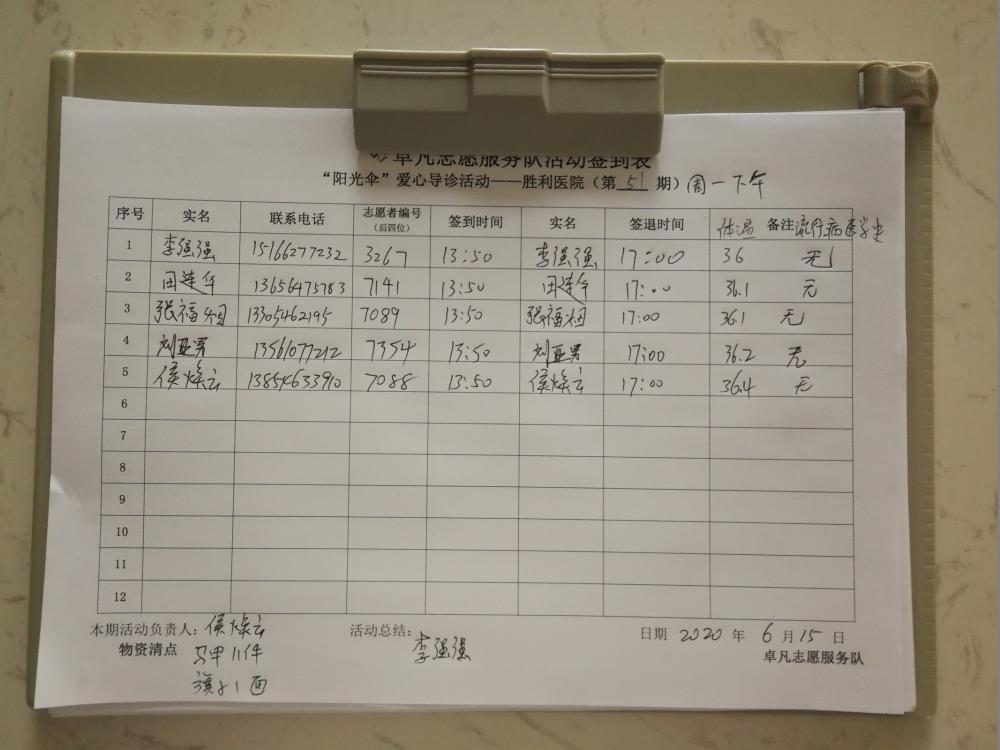 卓凡志愿服务队活动签到表
“阳光伞”爱心导诊活动——胜利医院（第 51 期）周一下午
序号 实名 联系电话 志愿者编号（后四位） 签到时间 实名 签退时间 体温 备注 流行病医学史
1 李强强 15166277232 3267 13:50 李强强 17:00 36 无
2 田莲华 13656475783 7141 13:50 田莲华 17:00 36.1 无
3 张福娟 13305462195 7089 13:50 张福娟 17:00 36.1 无
4 刘亚男 13561077212 7354 13:50 刘亚男 17:00 36.2 无
5 侯焕云 13854633910 7088 13:50 侯焕云 17:00 36.4 无
6
7
8
9
10
11
12
本期活动负责人：侯焕云 活动总结：李强强 日期 2020 年 6 月 15 日
物资清点 马甲11件 卓凡志愿服务队
旗子1面